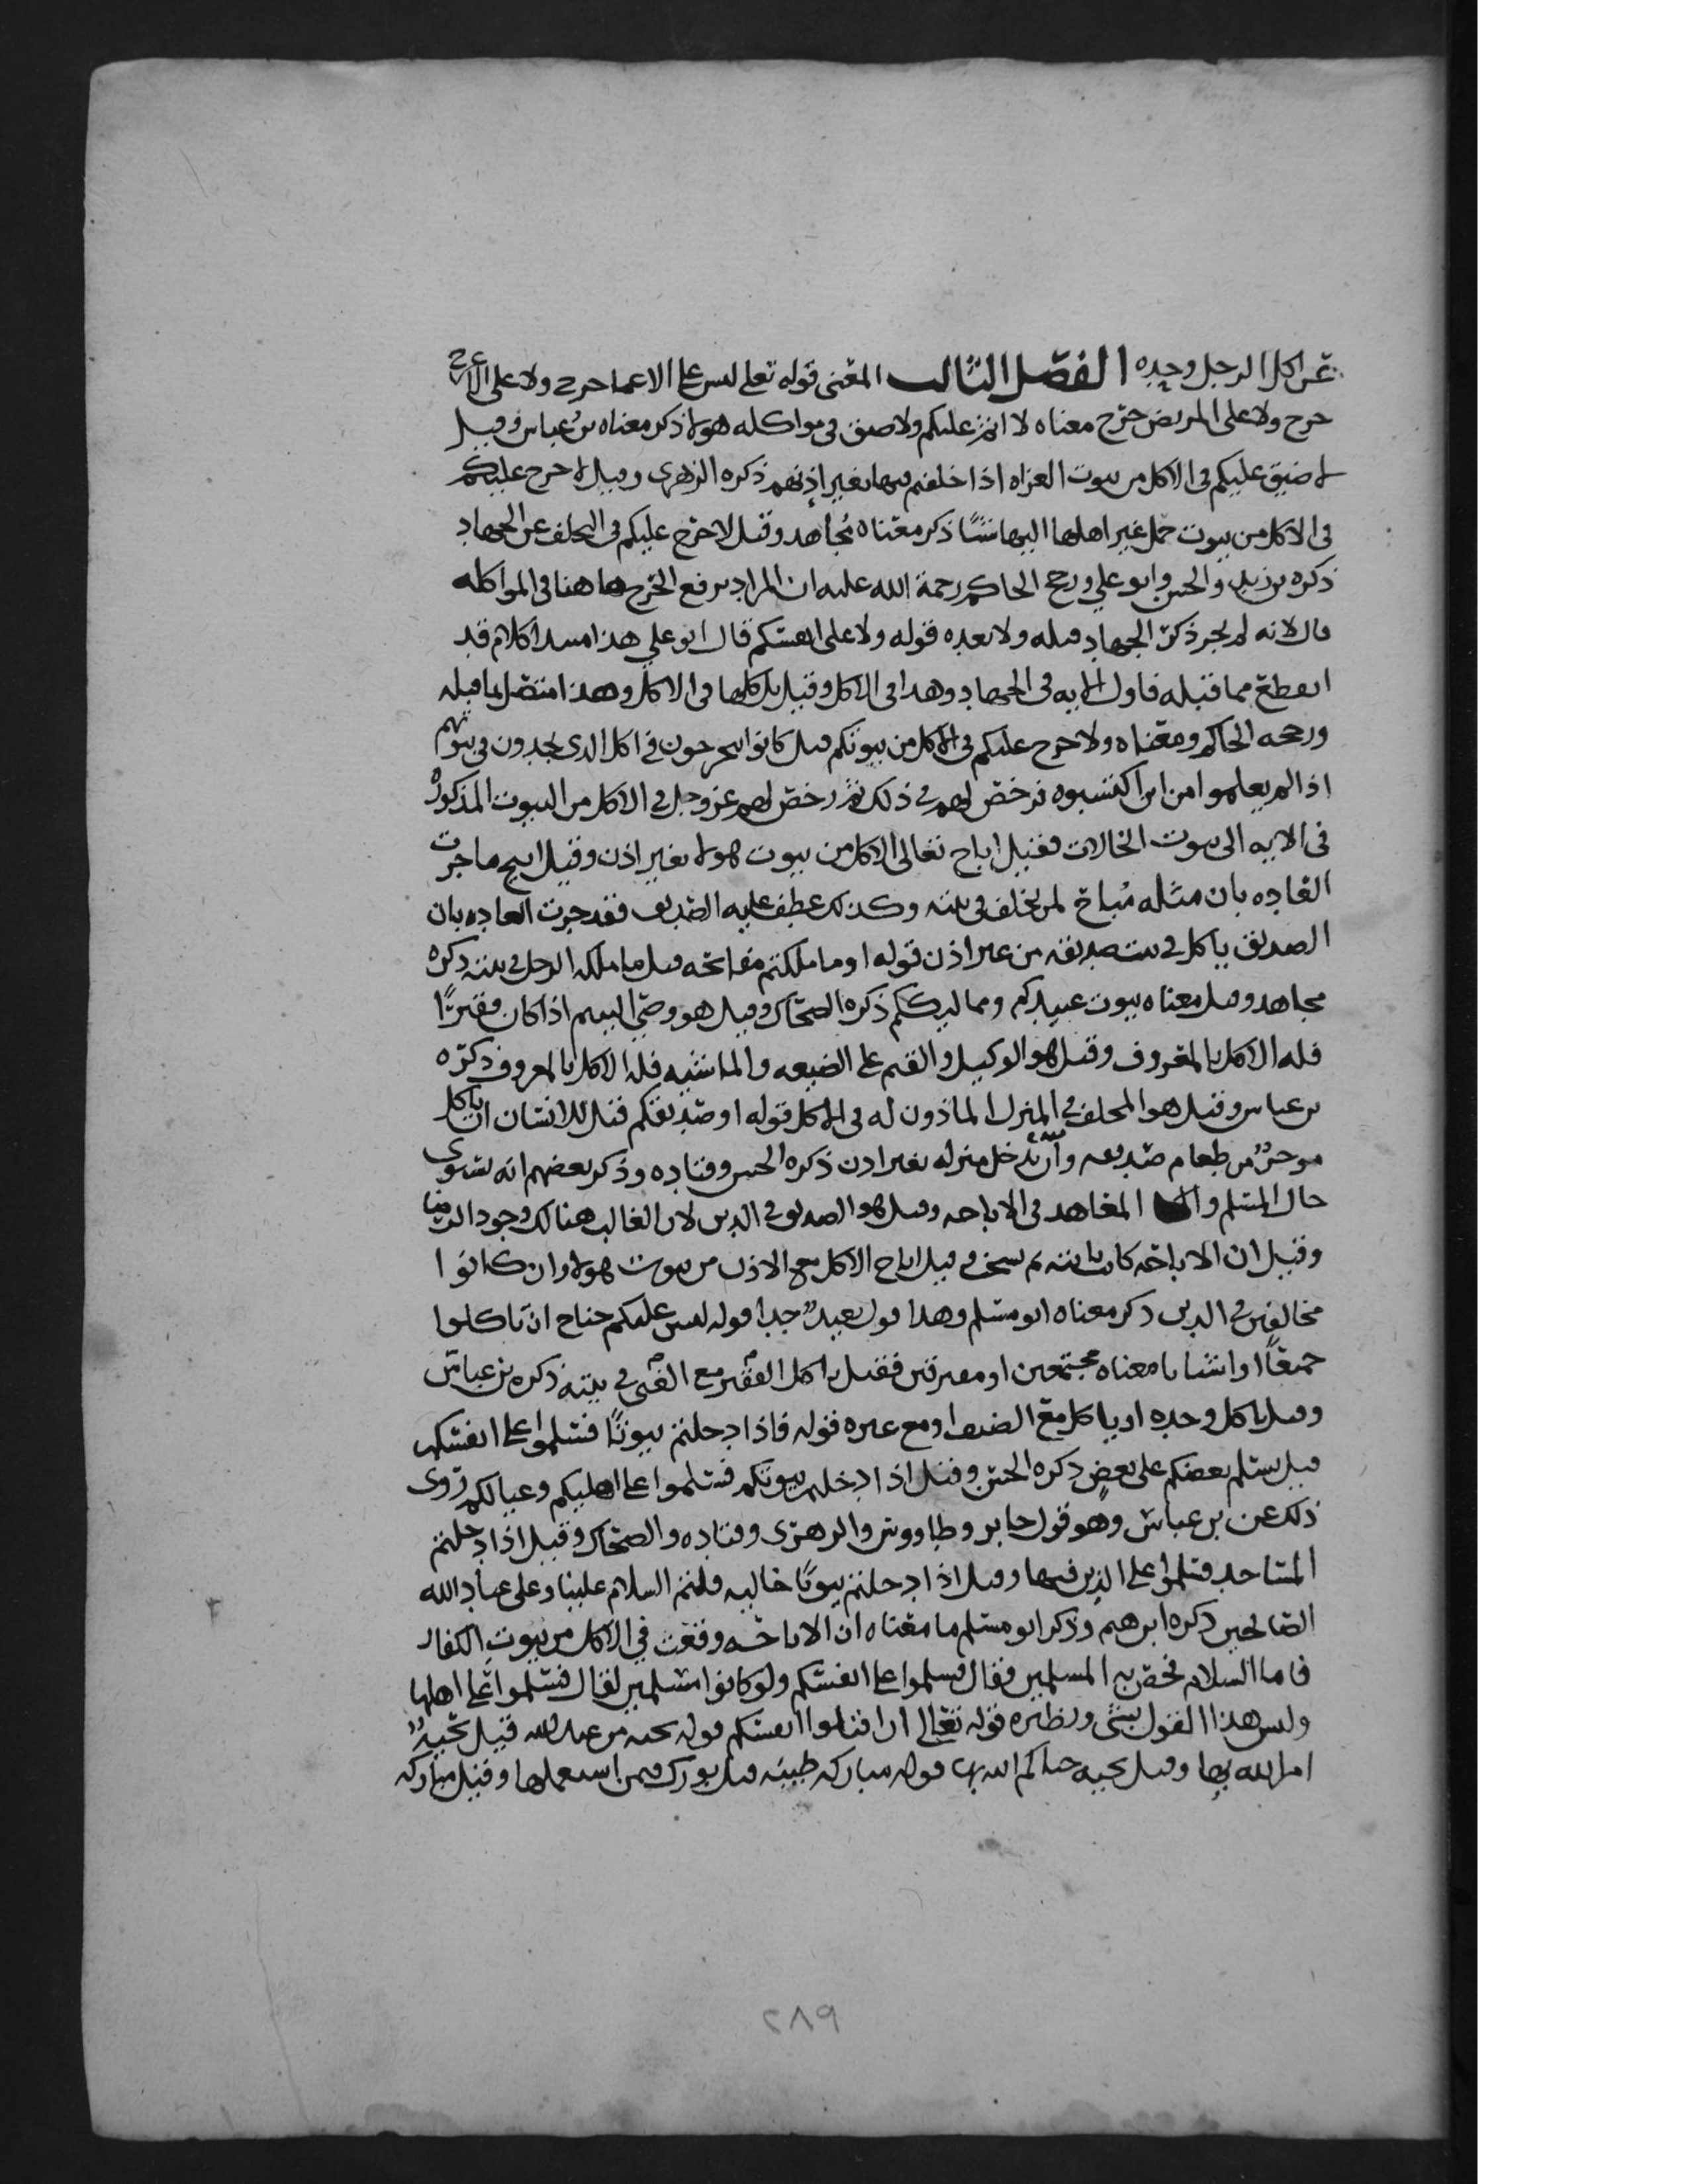 عن اكل الرجل وحده الفصل الثالث المعنى قوله تعلى ليس على الاعما حرج ولا على الاعرج
حرج ولا على المريض حرج معناه لا اثم عليكم ولا ضيق في مواكله هولا ذكر معناه بن عباس وقيل
لا ضيق عليكم في الاكل من بيوت الغزاه اذا خلفتم فيها بغير اذنهم ذكره الزهري وقيل لا حرج عليكم
في الاكل من بيوت حمل غير اهلها اليها شيًا ذكر معناه مُجاهد وقيل لا حرج عليكم في التخلف عن الجهاد
ذكره بن زيد والحسن وابو علي ورجح الحاكم رحمة الله عليه ان المراد برفع الحرج هاهنا في المواكله
قال لانه لم يجر ذكر الجهاد قبله ولا بعده قوله ولا على انفسكم قال ابو علي هذا مبتدا كلام قد
انقطع مما قبله فاول الايه في الجهاد وهذا في الاكل وقيل بل كلها في الاكل وهذا متصل بما قبله
ورجحه الحاكم ومعناه ولا حرج عليكم في الاكل من بيوتكم قيل كانوا يتحرجون في اكل الذي يجدون في بيوتهم
اذا لم يعلموا من اين اكتسبوه فرخص لهم في ذلك ثم رخص لهم عز وجل في الاكل من البيوت المذكوره
في الايه الى بيوت الخالات فقيل اباح تعالى الاكل من بيوت هولا بغير اذن وقيل ابيح ما جرت
العاده بان مثله مُباح لمن تخلف في بيته وكذلك عطف عليه الصديق فقد جرت العاده بان
الصديق ياكل في بيت صديقه من غير اذن قوله او ما ملكتم مفاتحه قيل ما ملكه الرجل في بيته ذكره
مجاهد وقيل معناه بيوت عبيدكم ومماليككم ذكره الضحاك وقيل هو وصي اليتيم اذا كان فقيرًا
فله الاكل بالمعروف وقيل هو الوكيل والقيم على الضيعه والماشيه فله الاكل بالمعروف ذكره
بن عباس وقيل هو المخلف في المنزل الماذون له في الاكل قوله او صديقكم قيل للانسان ان ياكل
من طعام صديقه وان يدخل منزله بغير اذن ذكره الحسن وقتاده وذكر بعضهم انه يستوى
حال المسلم و المعاهد في الاباحه وقيل هو الصديق في الدين لان الغالب هنالك وجود الرضا
وقيل ان الاباحه كانت ثابته ثم نسخ وقيل اباح الاكل مع الاذن من بيوت هولا وان كانوا
مخالفين في الدين ذكر معناه ابو مسلم وهذا قول بعيد جدا قوله ليس عليكم جناح ان تاكلوا
جميعًا او اشتاتا معناه مجتمعين او مفترقين فقيل ياكل الفقير مع الغني في بيته ذكره بن عباس
وقيل ياكل وحده او ياكل مع الضيف او مع غيره قوله فاذا دخلتم بيوتًا فسلموا على انفسكم
قيل يسلم بعضكم على بعضٍ ذكره الحسن وقيل اذا دخلتم بيوتكم فسلموا على اهليكم وعيالكم روى
ذلك عن بن عباس وهو قول جابر وطاووس والزهري وقتاده والضحاك وقيل اذا دخلتم
المساجد فسلموا على الذين فيها وقيل اذا دخلتم بيوتًا خاليه قلتم السلام علينا وعلى عباد الله
الصالحين ذكره ابرهيم وذكر ابو مسلم ما معناه ان الاباحه وقعت في الاكل من بيوت الكفار
فاما السلام فخص به المسلمين فقال فسلموا على انفسكم ولو كانوا مسلمين لقال فسلموا على اهلها
وليس هذا القول بشي ونظيره قوله تعالى ان اقتلوا انفسكم قوله تحيه من عند الله قيل تحيه
امر الله بها وقيل تحيه حياكم الله بها قوله مباركه طيبه قيل بورك فيمن استعملها وقيل مباركه
٢٨٩